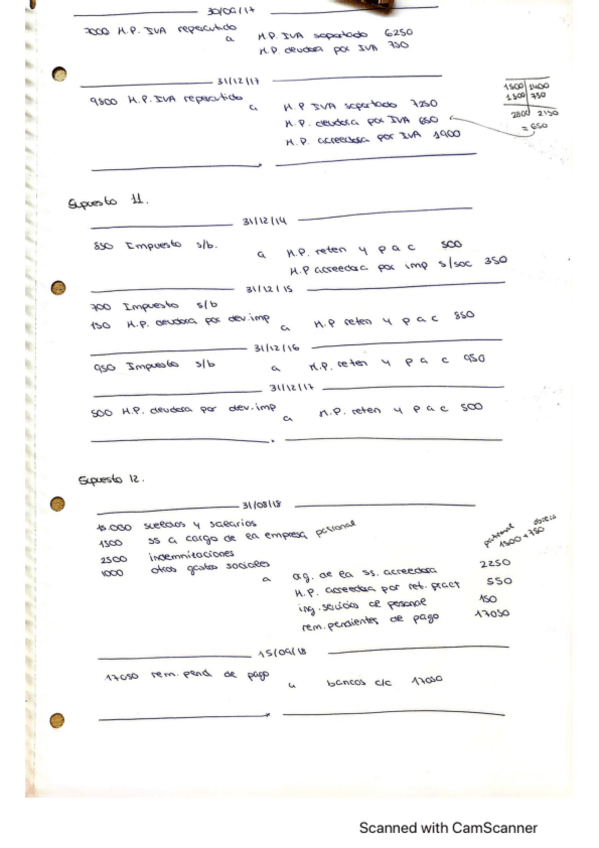 30/09/17
7000 H.P. IVA repercutido
a H.P. IVA soportado 6250
H.P deudora por IVA 750
31/12/17
9800 H.P. IVA repercutido
a H.P IVA soportado 7250
H.P. deudora por IVA 650
H.P. acreedora por IVA 1900
1500 1400
1300 750
2800 2150
= 650
Supuesto 11.
31/12/14
850 Impuesto s/b.
a H.P. reten y p a c 500
H.P acreedora por imp s/soc 350
31/12/15
700 Impuesto s/b
150 H.P. deudora por dev.imp
a H.P reten y p a c 850
31/12/16
950 Impuesto s/b
a H.P. reten y p a c 950
31/12/17
500 H.P. deudora por dev.imp
a H.P. reten y p a c 500
Supuesto 12.
31/08/18
15.000 sueldos y salarios
1500 ss a cargo de la empresa patronal
2500 indemnizaciones
1000 otros gastos sociales
patronal obrera
1500 + 750
a org. de la ss. acreedora 2250
H.P. acreedora por ret. pract 550
ing. servicios de personal 150
rem. pendientes de pago 17050
15/09/18
17050 rem. pend. de pago
a bancos c/c 17050
Scanned with CamScanner